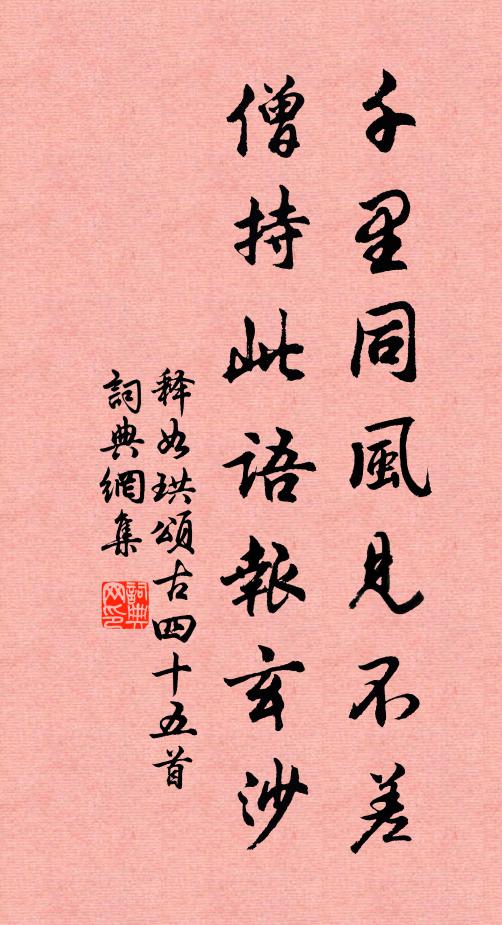 千里同風見不差
僧持此語報玄沙
释如珙頌古四十五首
詞典網集
詞典网印